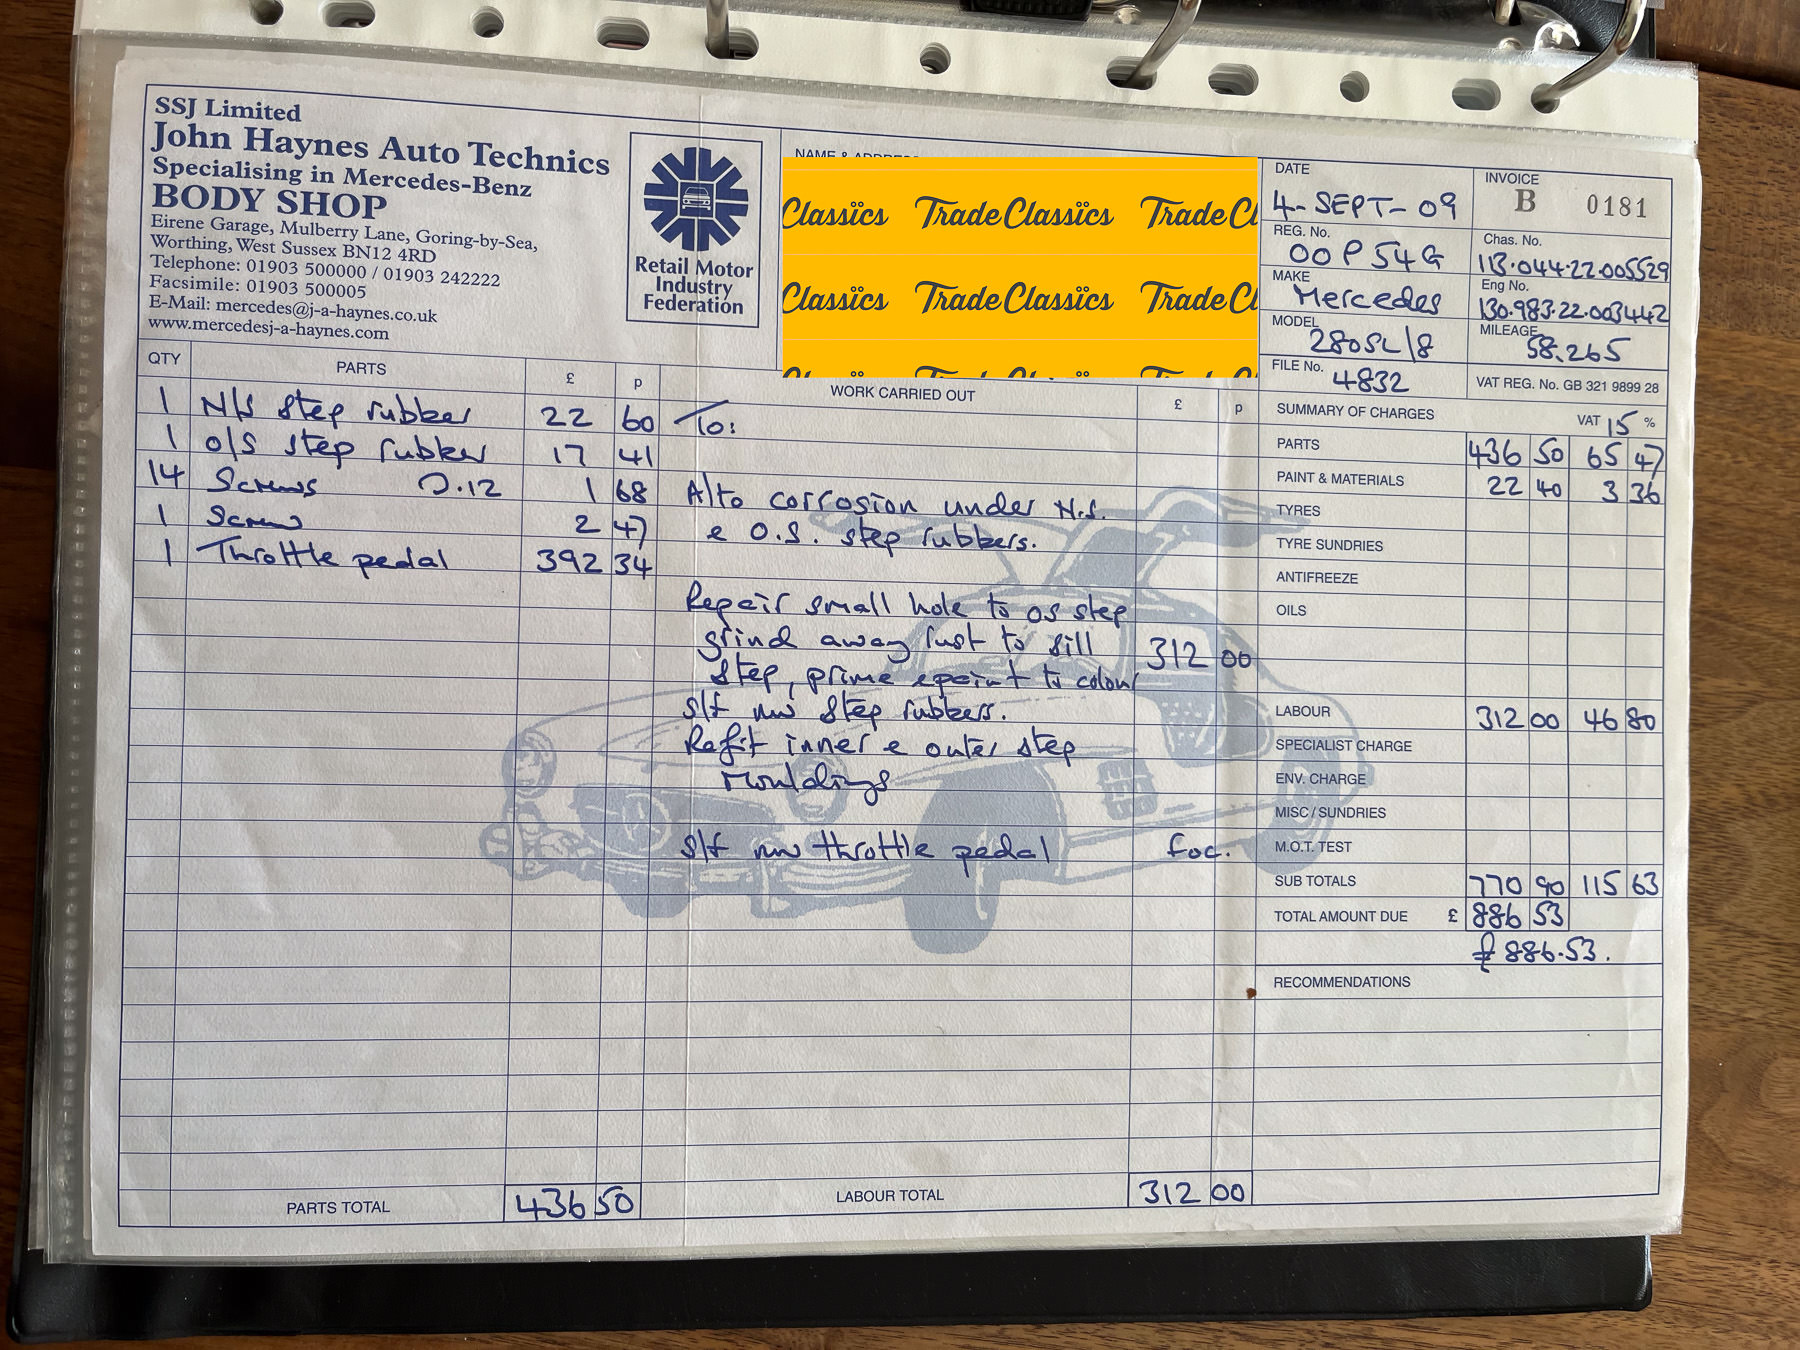 SSJ Limited
John Haynes Auto Technics
Specialising in Mercedes-Benz
BODY SHOP
Eirene Garage, Mulberry Lane, Goring-by-Sea,
Worthing, West Sussex BN12 4RD
Telephone: 01903 500000 / 01903 242222
Facsimile: 01903 500005
E-Mail: mercedes@j-a-haynes.co.uk
www.mercedesj-a-haynes.com
Retail Motor
Industry
Federation
NAME & ADDRESS
Classics Trade Classics Trade Cl
Classics Trade Classics Trade Cl
DATE
4-SEPT-09
INVOICE
B 0181
REG. No.
OOP 54G
Chas. No.
113.044.22.005529
MAKE
Mercedes
Eng No.
130.983.22.003442
MODEL
280SL/8
MILEAGE
58,265
FILE No.
4832
VAT REG. No. GB 321 9899 28
QTY PARTS £ p
1 N/S step rubber 22 60
1 O/S step rubber 17 41
14 Screws 0.12 1 68
1 Screw 2 47
1 Throttle pedal 392 34
PARTS TOTAL 436 50
WORK CARRIED OUT £ p
To:
A/to corrosion under N.S.
e O.S. step rubbers.
Repair small hole to OS step
grind away rust to sill 312 00
step, prime e paint to colour
S/f nw step rubbers.
Refit inner e outer step
mouldings
S/f nw throttle pedal foc.
LABOUR TOTAL 312 00
SUMMARY OF CHARGES VAT 15 %
PARTS 436 50 65 47
PAINT & MATERIALS 22 40 3 36
TYRES
TYRE SUNDRIES
ANTIFREEZE
OILS
LABOUR 312 00 46 80
SPECIALIST CHARGE
ENV. CHARGE
MISC / SUNDRIES
M.O.T. TEST
SUB TOTALS 770 90 115 63
TOTAL AMOUNT DUE £ 886 53
£886.53.
RECOMMENDATIONS